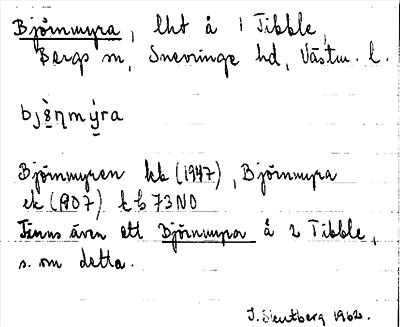 Björnmyra, lht å 1 Tibble,
Bergs sn, Snevringe hd, Västm. l.
bjö̀ṇmýra
Björnmyren kk (1947), Björnmyra
ek (1907) kb 73NO
Finns även ett Björnmyra å 2 Tibble,
s. om detta.
1962.